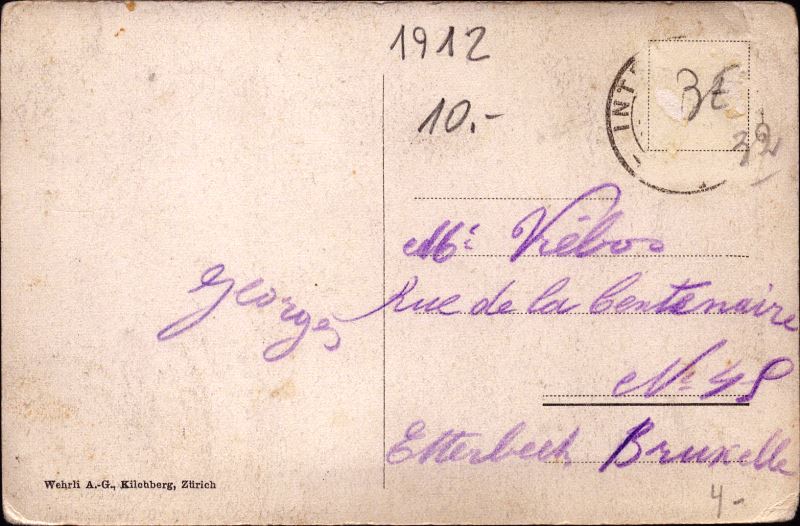 1912
10.-
INT
3E
32
Mr Viebos
Rue de la Centenaire
Georges
No 48
Etterbeek Bruxelle
Wehrli A.-G., Kilchberg, Zürich
4-